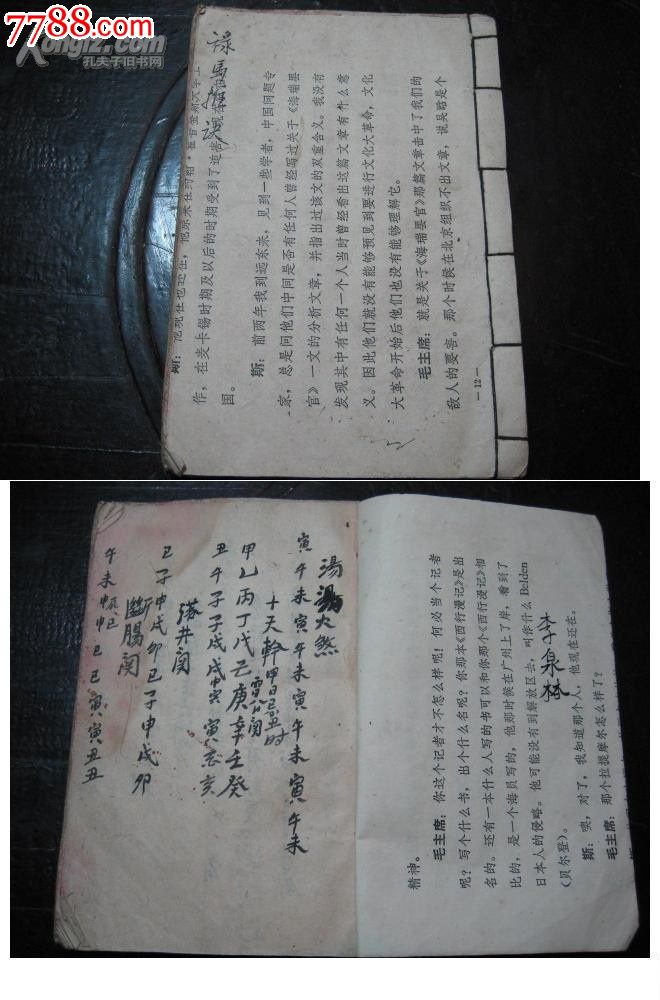 7788.com
Kongfz.com
孔夫子旧书网
禄馬
斯：他现在也还在，他原来在约翰·
作，在麦卡锡时期及以后的时期受到了迫害，现在
国。
斯：前两年我到远东来，见到一些学者，中国问题专
家，总是问他们中间是否有任何人曾经写过关于《海瑞罢
官》一文的分析文章，并指出过该文的双重含义。我没有
发现其中有任何一个人当时曾经看出这篇文章有什么意
义。因此他们就没有能够预见到要进行文化大革命，文化
大革命开始后他们也没有能够理解它。
毛主席：就是关于《海瑞罢官》那篇文章击中了我们的
敌人的要害。那个时候在北京组织不出文章，说吴晗是个
—12—
湯湯火煞
寅午未寅午未寅午未寅午未
十天幹
甲日己丑时
雷公関
甲乙丙丁戊己庚辛壬癸
丑午子子戌戌寅寅亥亥
落井関
巳子申戌卯巳子申戌卯
斷腸関
午未
巳巳寅寅丑丑
精神。
毛主席：你这个记者才不怎么样呢！何必当个记者
呢？写个什么书，出个什么名呢？你那本《西行漫记》是出
名的。还有一本什么人写的书可以和你那个《西行漫记》相
比的，是一个海员写的，他那时候在广州上了岸，看到了
日本人的侵略。他可能没有到解放区去，叫作什么Belden
（贝尔登）。
李泉林
斯：噢，对了，我知道那个人，他现在还在。
毛主席：那个拉提摩尔怎么样了？